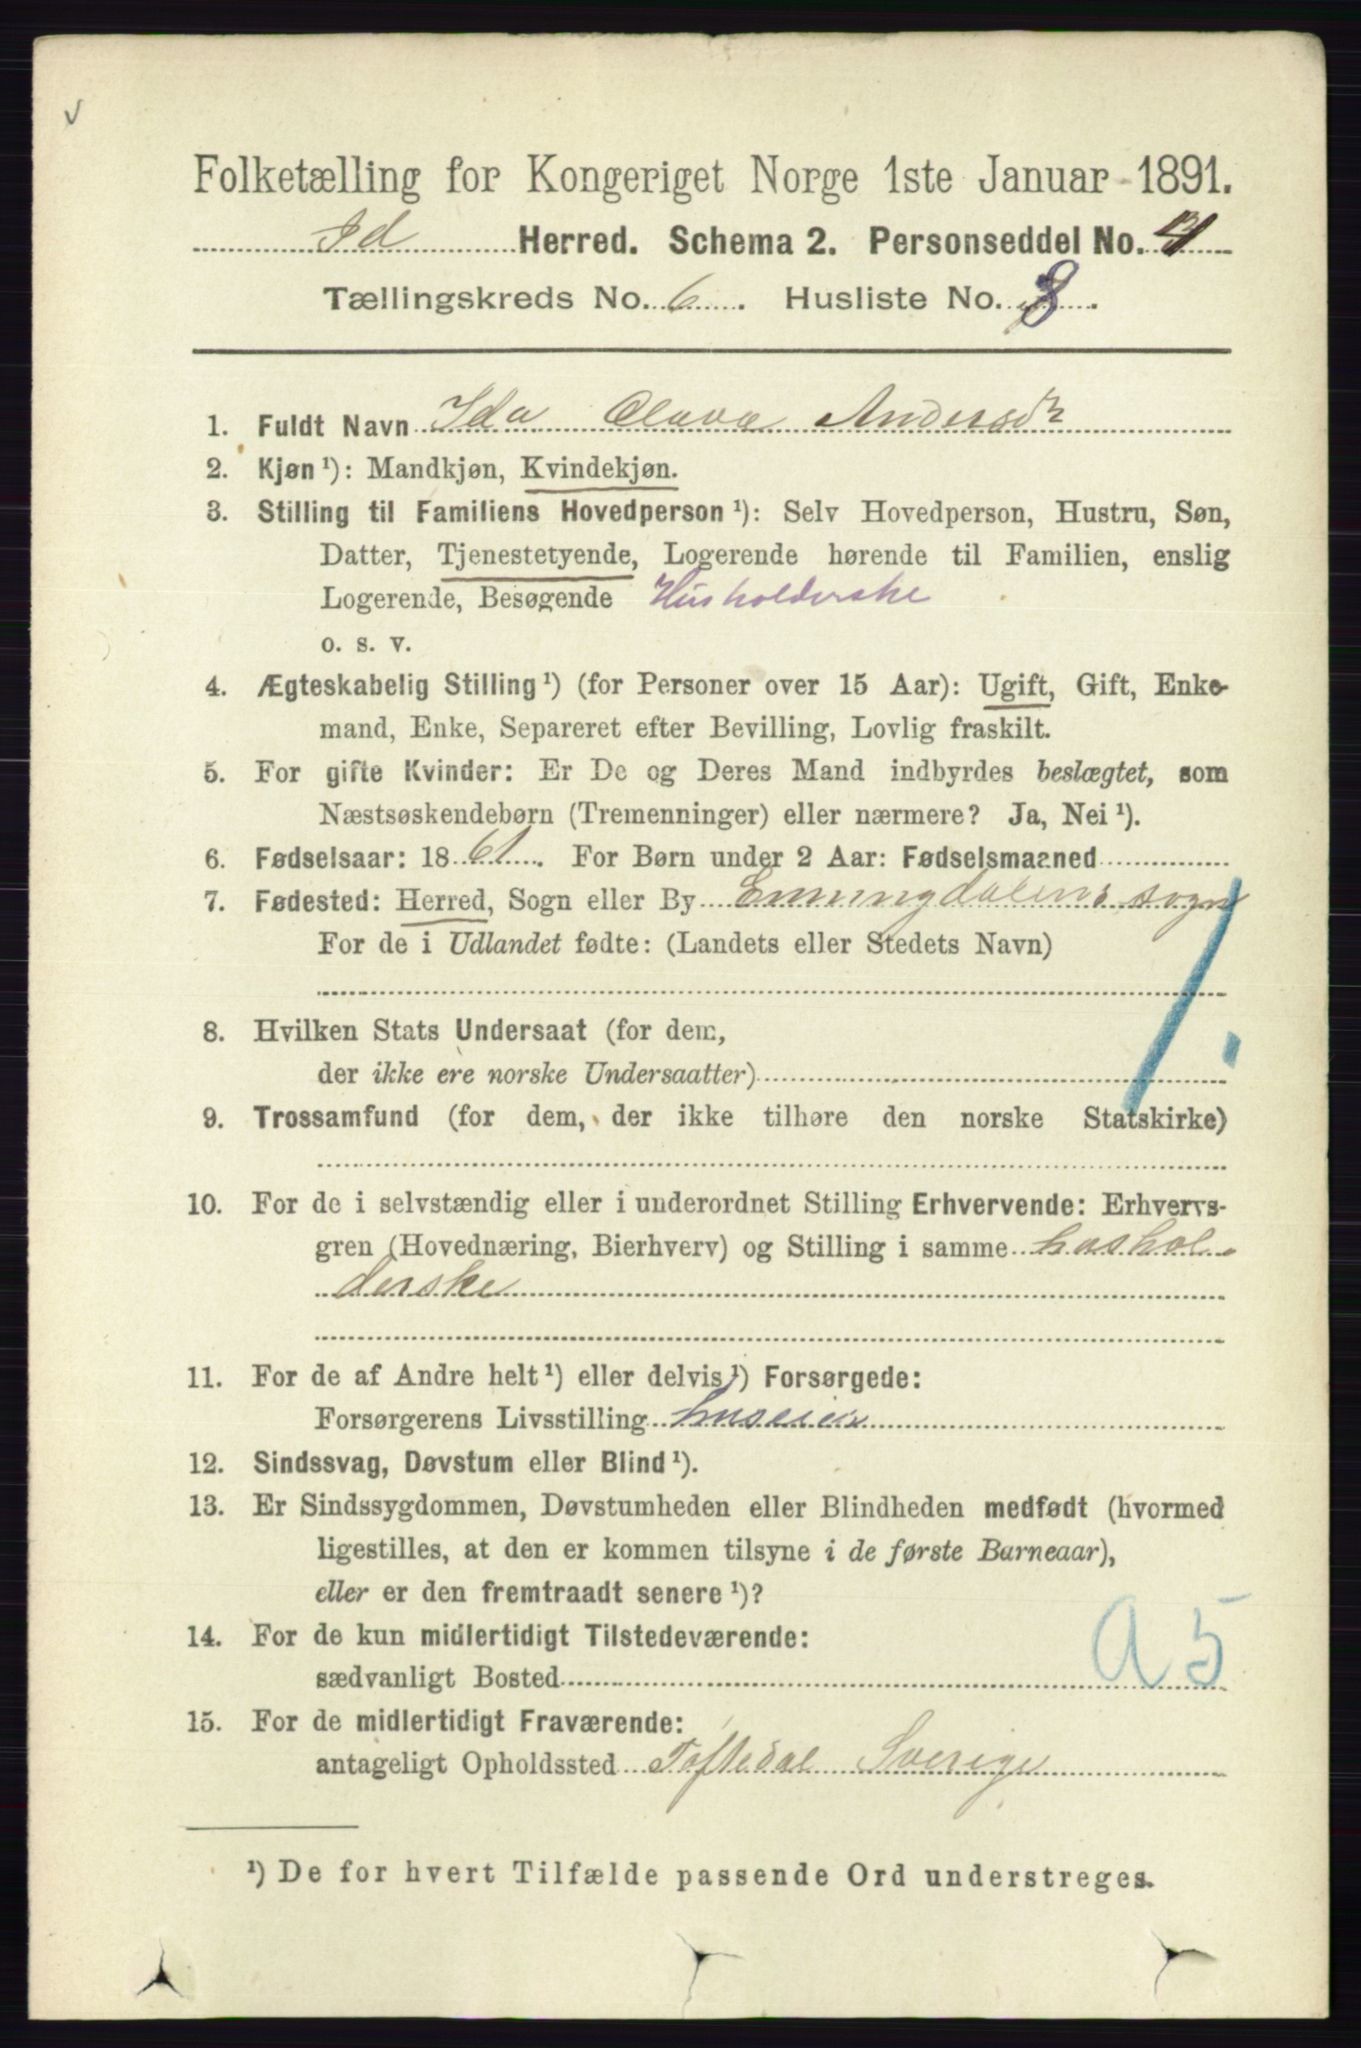 Folketælling for Kongeriget Norge 1ste Januar 1891.
Id Herred. Schema 2. Personseddel No.
Tællingskreds No. 6. Husliste No. 8.
1. Fuldt Navn Ida Olava Andersdr
2. Kjøn ¹): Mandkjøn, Kvindekjøn.
3. Stilling til Familiens Hovedperson ¹): Selv Hovedperson, Hustru, Søn,
Datter, Tjenestetyende, Logerende hørende til Familien, enslig
Logerende, Besøgende Husholderske
o. s. v.
4. Ægteskabelig Stilling ¹) (for Personer over 15 Aar): Ugift, Gift, Enke-
mand, Enke, Separeret efter Bevilling, Lovlig fraskilt.
5. For gifte Kvinder: Er De og Deres Mand indbyrdes beslægtet, som
Næstsøskendebørn (Tremenninger) eller nærmere? Ja, Nei ¹).
6. Fødselsaar: 1861. For Børn under 2 Aar: Fødselsmaaned
7. Fødested: Herred, Sogn eller By Enningdalens sogn
For de i Udlandet fødte: (Landets eller Stedets Navn)
8. Hvilken Stats Undersaat (for dem,
der ikke ere norske Undersaatter)
9. Trossamfund (for dem, der ikke tilhøre den norske Statskirke)
10. For de i selvstændig eller i underordnet Stilling Erhvervende: Erhvervs-
gren (Hovednæring, Bierhverv) og Stilling i samme hushol-
derske
11. For de af Andre helt ¹) eller delvis ¹) Forsørgede:
Forsørgerens Livsstilling huseier
12. Sindssvag, Døvstum eller Blind ¹).
13. Er Sindssygdommen, Døvstumheden eller Blindheden medfødt (hvormed
ligestilles, at den er kommen tilsyne i de første Barneaar),
eller er den fremtraadt senere ¹)?
14. For de kun midlertidigt Tilstedeværende:
sædvanligt Bosted
a 5
15. For de midlertidigt Fraværende:
antageligt Opholdssted Töftedal Sverige
¹) De for hvert Tilfælde passende Ord understreges.